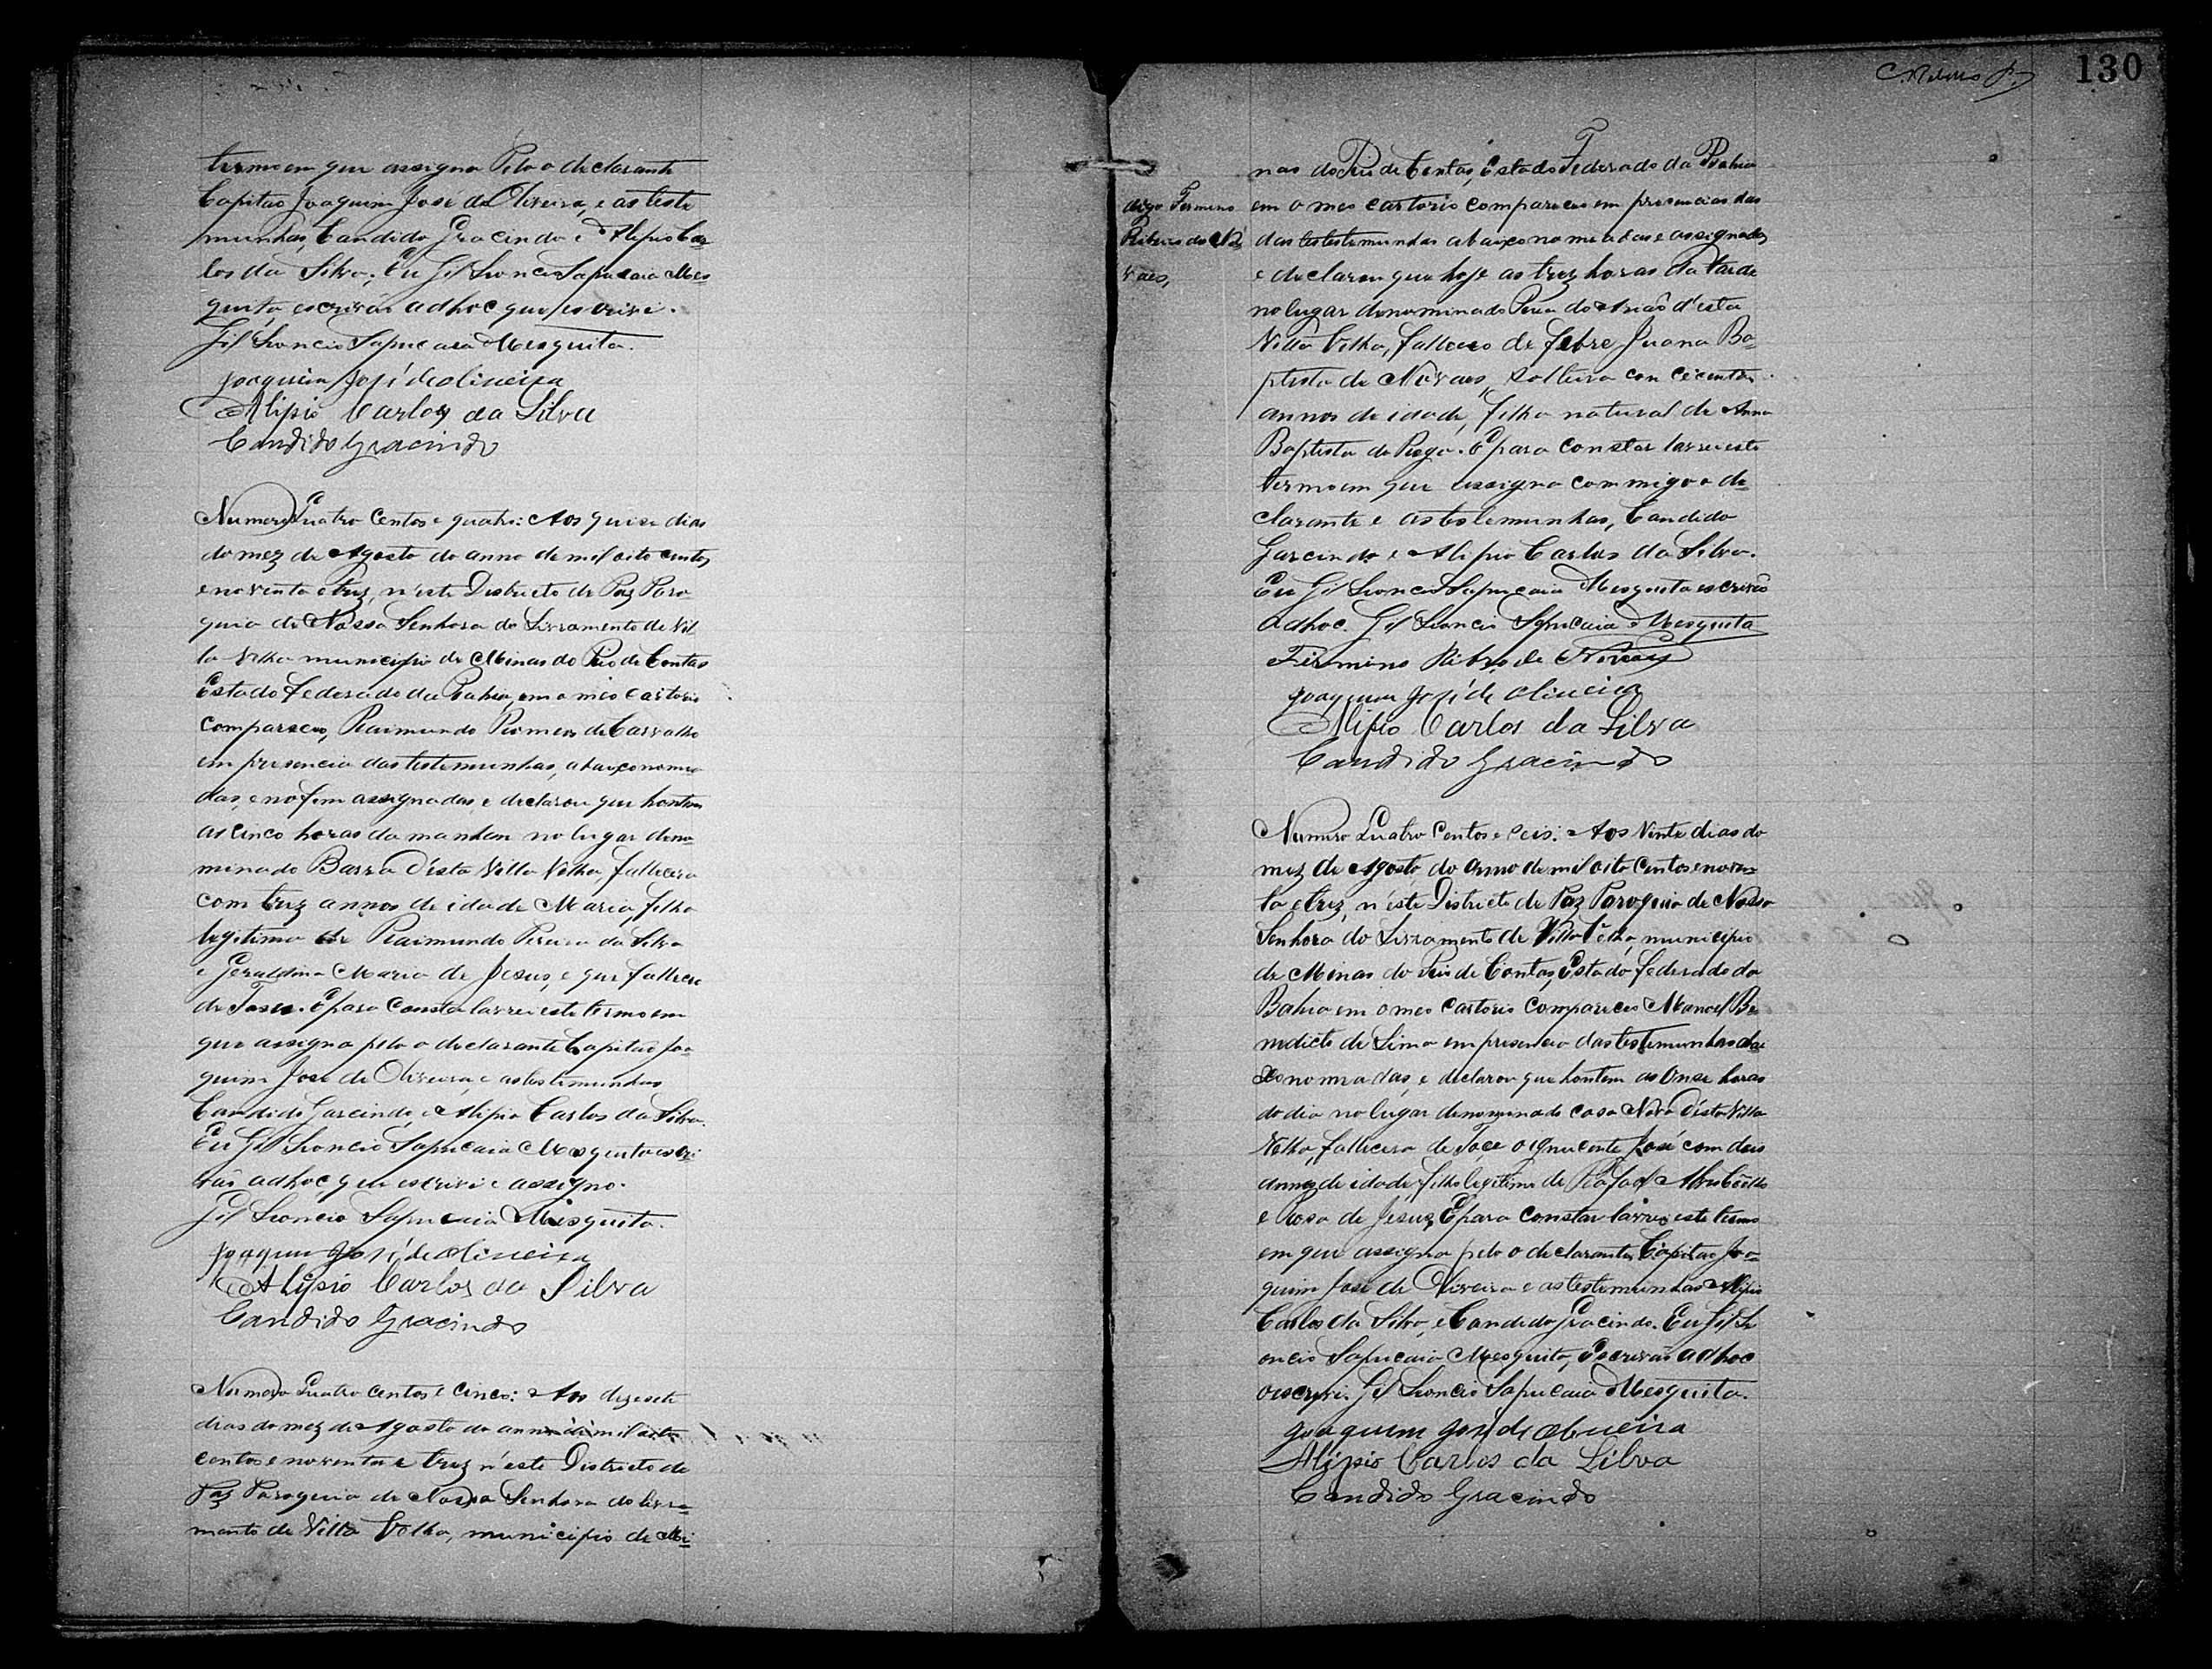 termo em que assigna Pelo o declarante
Capitão Joaquim José de Oliveira, e as teste
munhas, Candido Gracindo e Alipio Car
los da Silva; Eu Gil Leoncio Sapucaia Mes
quita, escrivão adhoc que escrivi.
Gil Leoncio Sapucaia Mesquita.
Joaquim José de Oliveira
Alipio Carlos da Silva
Candido Gracindo
Numero Quatro Centos e quatro: Aos quise dias
do mez de Agosto do anno de mil oito centos
e noventa e trez, n'este Districto de Paz Paro
quia de Nossa Senhora do Livramento de Vil
la Velha municipio de Minas do Rio de Contas
Estado federado da Bahia, em o meo cartorio
compareceo, Raimundo Romeiro de Carvalho
em presencia das testemunhas, abaixo nomea
das, e no fim assignadas e declarou que hontem
as cinco horas da manhan no lugar deno
minado Barra d'esta Villa Velha, fallecera
com trez annos de idade Maria, filha
legitima de Raimundo Pereira da Silva
e Geraldina Maria de Jesus, e que falleceu
de Tosse. E para consta lavrei este termo em
que assigna pelo o declarante Capitão Joa
quim José de Oliveira, e as testemunhas
Candido Garcindo, e Alipio Carlos da Silva.
Eu Gil Leoncio Sapucaia Mesquita escri
vão adhoc que escrivi e assigno.
Gil Leoncio Sapucaia Mesquita.
Joaquim José de Oliveira
Alipio Carlos da Silva
Candido Gracindo
Numero Quatro centos e cinco: Aos dezesete
dias do mez de Agosto do anno de mil oito
centos e noventa e trez n'este Districto de
Paz Paroquia de Nossa Senhora do Livra
mento de Villa Velha, municipio de Mi
130
nas do Rio de Contas, Estado Federado da Bahia
digo Fermino
Ribeiro de No
vaes,
em o meo cartorio compareceo em presencias das
das testestemunhas abaixo nomeadas e assignadas
e declarou que hoje as trez horas da tarde
no lugar denominado d'esta
Villa Velha, falleceo de febre Juana Ba
ptista de Novaes, solteira con cicenta
annos de idade, filha natural de Anna
Baptista do Rego. E para constar lavrei este
termo em que assigna commigo o de
clarante e as testemunhas, Candido
Garcindo e Alipio Carlos da Silva.
Eu Gil Leoncio Sapucaia Mesquita escrivão
adhoc. Gil Leoncio Sapucaia Mesquita
Fermino Ribro de Novaes
Joaquim José de Oliveira
Alipio Carlos da Silva
Candido Gracindo
Numero Quatro Centos e seis: Aos Vinte dias do
mez de Agosto do anno de mil oito centos e noven
ta e trez, n'este Districto de Paz Paroquia de Nossa
Senhora do Livramento de Villa Velha, municipio
de Minas do Rio de Contas, Estado federado da
Bahia em o meo cartorio compareceo Manoel Be
nedicto de Lima em presencia das testemunhas abai
xo nomiadas, e declarou que hontem as onze horas
do dia no lugar denominado casa Nova d'esta Villa
Velha, fallecera de Toçe o ignucente José com dois
annos de idade, filho legitimo de Rafael Alves Coêlho
e Rosa de Jesus, E para constar lavrei este termo
em que assigna pelo o declarante, Capitão Joa
quim José de Oliveira e as testemunhas Alipio
Carlos da Silva, e Candido Gracindo. Eu Gil Le
oncio Sapucaia Mesquita, Escrivão adhoc
o escrivi. Gil Leoncio Sapucaia Mesquita.
Joaquim José de Oliveira
Alipio Carlos da Silva
Candido Gracindo